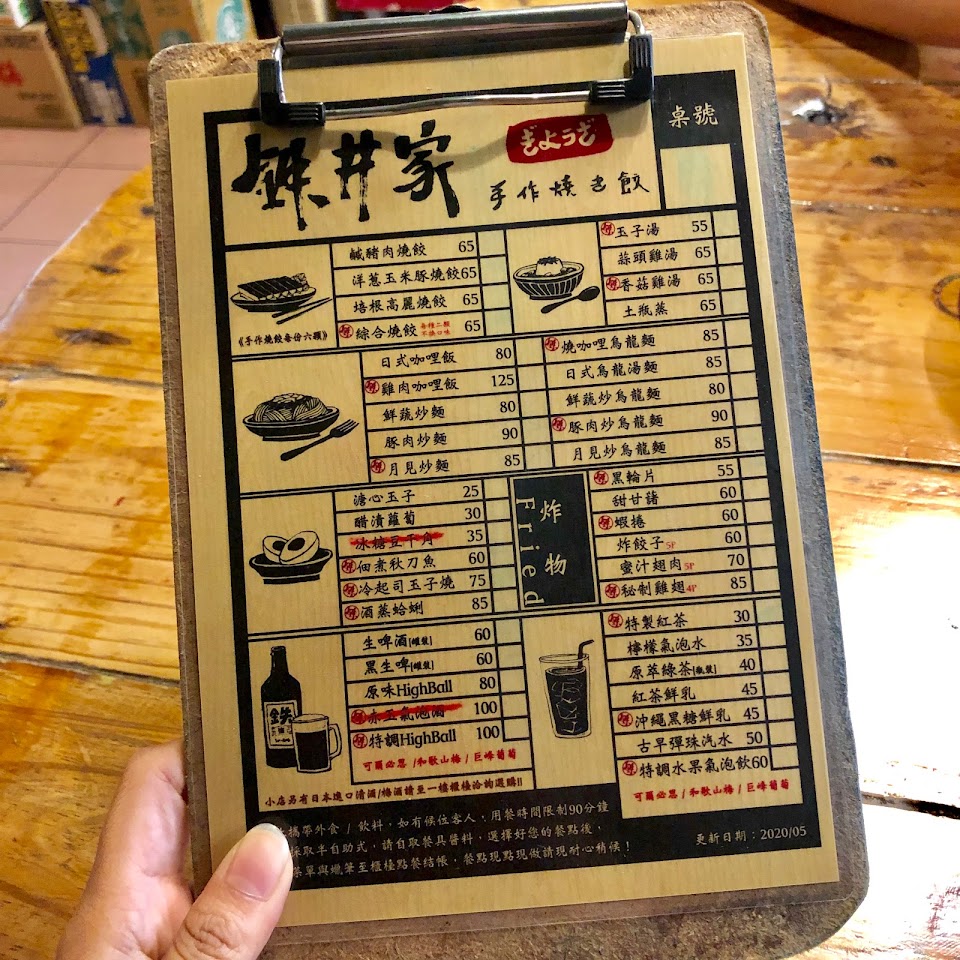 鉄井家
ぎょうざ
手作燒き餃
桌號
鹹豬肉燒餃 65
洋蔥玉米豚燒餃 65
培根高麗燒餃 65
綜合燒餃 每種二顆 不換口味 65
《手作燒餃每份六顆》
玉子湯 55
蒜頭雞湯 65
香菇雞湯 65
土瓶蒸 65
日式咖哩飯 80
雞肉咖哩飯 125
鮮蔬炒麵 80
豚肉炒麵 90
月見炒麵 85
燒咖哩烏龍麵 85
日式烏龍湯麵 85
鮮蔬炒烏龍麵 85
豚肉炒烏龍麵 90
月見炒烏龍麵 85
溏心玉子 25
醋漬蘿蔔 30
冰糖豆干角 35
佃煮秋刀魚 60
冷起司玉子燒 75
酒蒸蛤蜊 85
炸物
Fried
黑輪片 55
甜甘藷 60
蝦捲 60
炸餃子 5P 60
蜜汁翅肉 5P 70
秘制雞翅 4P 85
生啤酒|罐裝| 60
黑生啤|罐裝| 60
原味HighBall 80
赤玉氣泡酒 100
特調HighBall 100
可爾必思 / 和歌山梅 / 巨峰葡萄
小店另有日本進口清酒/梅酒請至一樓櫃檯洽詢選購!!
鉄
特製紅茶 30
檸檬氣泡水 35
原萃綠茶|瓶裝| 40
紅茶鮮乳 45
沖繩黑糖鮮乳 45
古早彈珠汽水 50
特調水果氣泡飲 60
可爾必思 / 和歌山梅 / 巨峰葡萄
攜帶外食 / 飲料,如有候位客人,用餐時間限制90分鐘
採取半自助式,請自取餐具醬料,選擇好您的餐點後,
菜單與蠟筆至櫃檯點餐結帳,餐點現點現做請現耐心稍候!
更新日期:2020/05